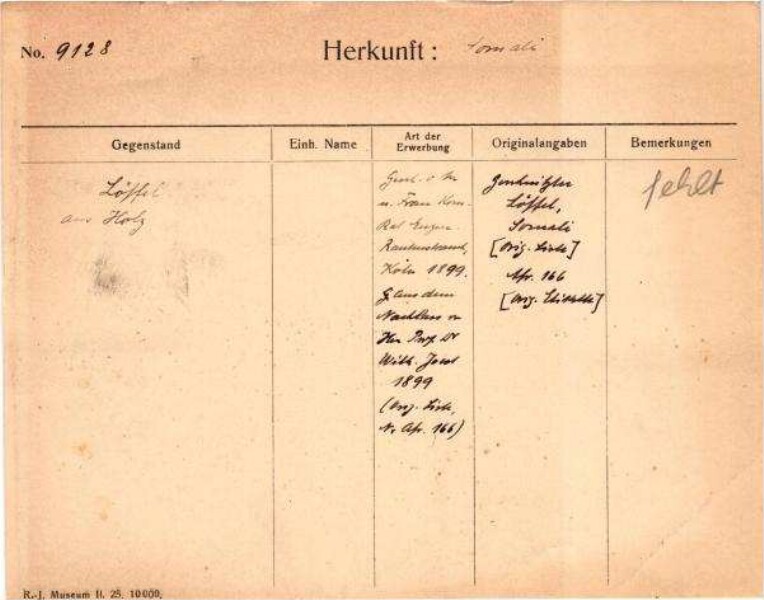 No. 9128
Herkunft: Somali
Gegenstand
Einh. Name
Art der
Erwerbung
Originalangaben
Bemerkungen
Löffel
aus Holz
Gesch. v. Hr
u. Frau Kom.
Rat Eugen
Rautenstrauch,
Köln 1899.
G. aus dem
Nachlass v
Herr Prof Dr
Wilh. Joest
1899
(Org. Liste,
Nr Afr. 166)
Geschnitzter
Löffel,
Somali
[Orig. Liste]
Afr. 166
[Org. Etikette]
fehlt
R.-J. Museum II. 25. 10000.